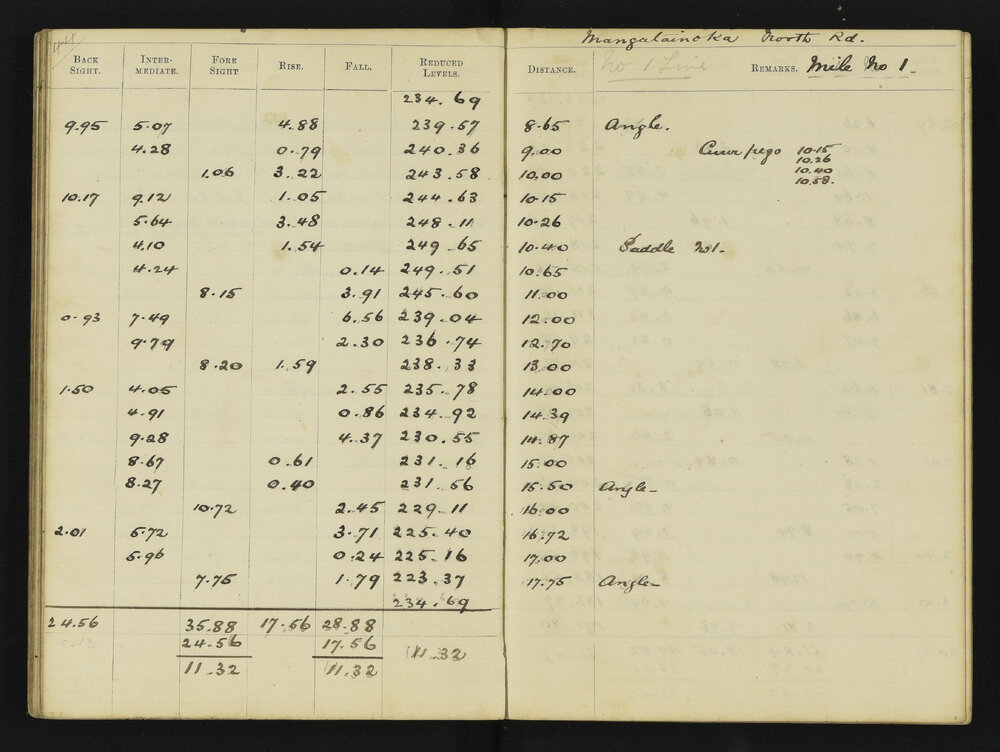 Mangatainoka North Rd.
No 1 Line
BACK SIGHT. INTER-MEDIATE. FORE SIGHT RISE. FALL. REDUCED LEVELS. DISTANCE. REMARKS. Mile No 1.
234.69
9.95 5.07 4.88 239.57 8.65 Angle.
4.28 0.79 240.36 9.00 Curve pegs 10.15
10.26
1.06 3.22 243.58 10.00 10.40
10.58.
10.17 9.12 1.05 244.63 10.15
5.64 3.48 248.11 10.26
4.10 1.54 249.65 10.40 Saddle No1.
4.24 0.14 249.51 10.65
8.15 3.91 245.60 11.00
0.93 7.49 6.56 239.04 12.00
9.79 2.30 236.74 12.70
8.20 1.59 238.33 13.00
1.50 4.05 2.55 235.78 14.00
4.91 0.86 234.92 14.39
9.28 4.37 230.55 14.87
8.67 0.61 231.16 15.00
8.27 0.40 231.56 15.50 Angle-
10.72 2.45 229.11 16.00
2.01 5.72 3.71 225.40 16.72
5.96 0.24 225.16 17.00
7.75 1.79 223.37 17.75 Angle-
234.69
24.56 35.88 17.56 28.88
24.56 17.56 11.32
11.32 11.32